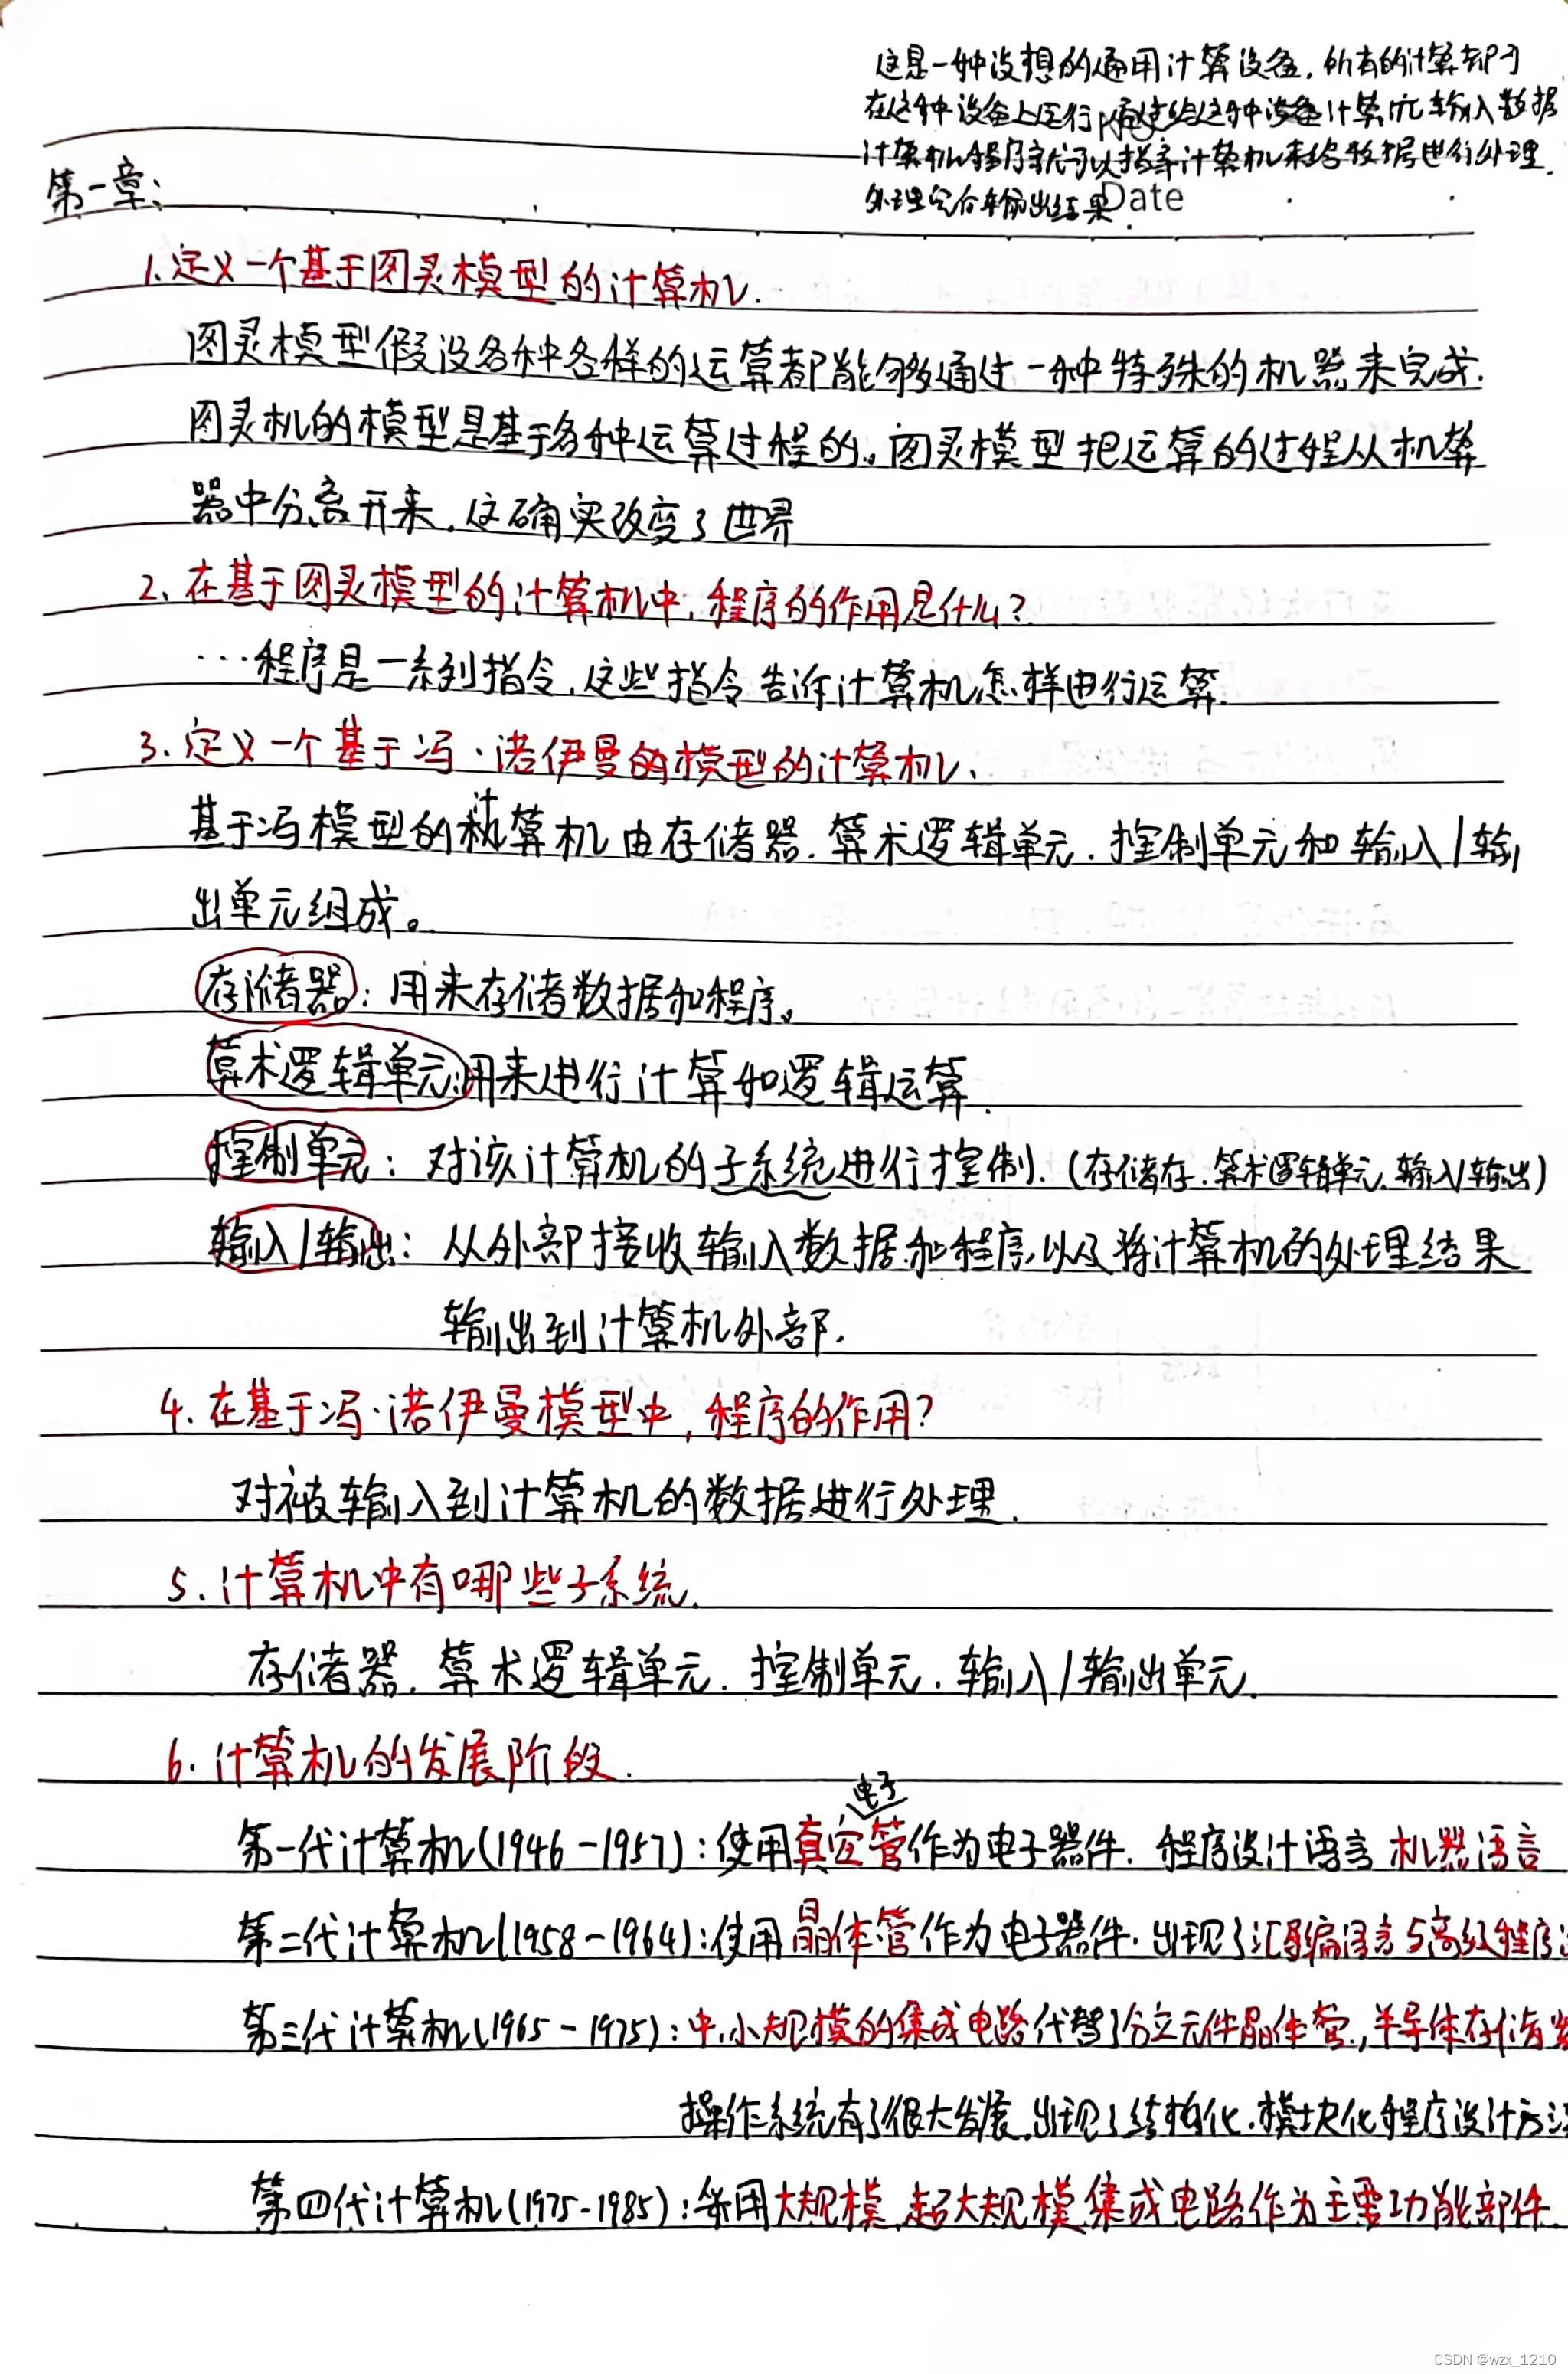 这是一种设想的通用计算设备,所有的计算都可
在这种设备上运行,通过给这种设备计算机输入数据
计算机程序就可以指导计算机来给数据进行处理.
处理完后输出结果.
Date
第一章:
1.定义一个基于图灵模型的计算机.
图灵模型假设各种各样的运算都能够通过一种特殊的机器来完成.
图灵机的模型是基于各种运算过程的。图灵模型把运算的过程从机算
器中分离开来,这确实改变了世界
2.在基于图灵模型的计算机中,程序的作用是什么?
…程序是一系列指令,这些指令告诉计算机怎样进行运算.
3.定义一个基于冯·诺伊曼的模型的计算机.
基于冯模型的计算机由存储器.算术逻辑单元.控制单元和输入/输
出单元组成。
存储器:用来存储数据和程序。
算术逻辑单元:用来进行计算如逻辑运算.
控制单元:对该计算机的子系统进行控制.(存储存.算术逻辑单元.输入/输出)
输入/输出:从外部接收输入数据和程序,以及将计算机的处理结果
输出到计算机外部.
4.在基于冯·诺伊曼模型中,程序的作用?
对被输入到计算机的数据进行处理.
5.计算机中有哪些子系统.
存储器.算术逻辑单元.控制单元.输入/输出单元.
6.计算机的发展阶段.
电子
第一代计算机(1946-1957):使用真空管作为电子器件.程序设计语言机器语言
第二代计算机(1958-1964):使用晶体管作为电子器件.出现了汇编语言与高级程序
第三代计算机(1965-1975):中.小规模的集成电路代替了分立元件晶体管,半导体存储
操作系统有了很大发展.出现了结构化.模块化程序设计方法
第四代计算机(1975-1985):采用大规模.超大规模集成电路作为主要功能部件.
CSDN @wzx_1210